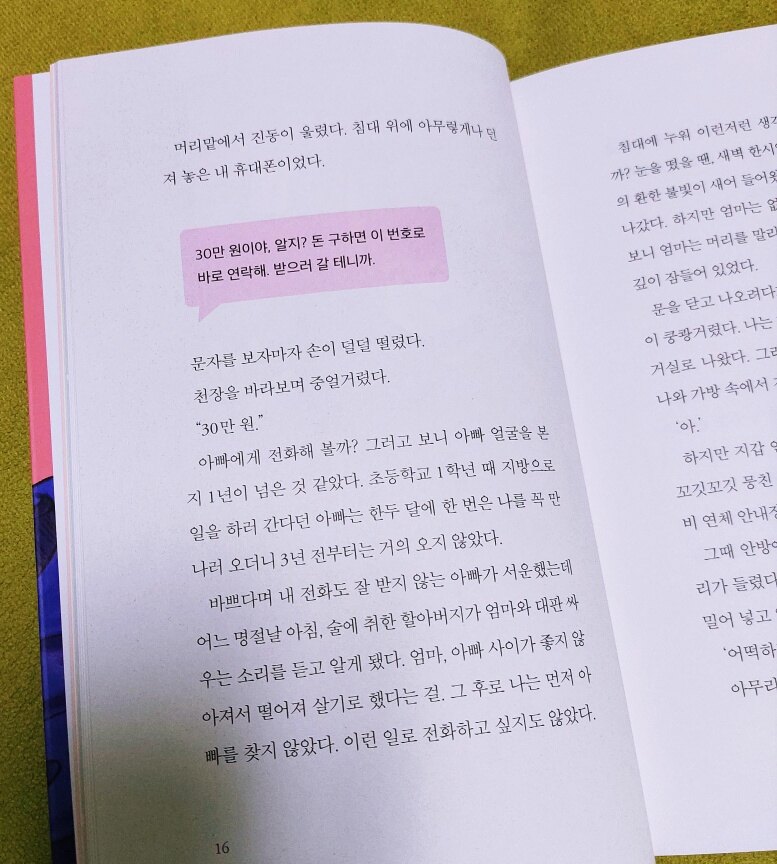 머리맡에서 진동이 울렸다. 침대 위에 아무렇게나 던
져 놓은 내 휴대폰이었다.
30만 원이야, 알지? 돈 구하면 이 번호로
바로 연락해. 받으러 갈 테니까.
문자를 보자마자 손이 덜덜 떨렸다.
천장을 바라보며 중얼거렸다.
“30만 원.”
아빠에게 전화해 볼까? 그러고 보니 아빠 얼굴을 본
지 1년이 넘은 것 같았다. 초등학교 1학년 때 지방으로
일을 하러 간다던 아빠는 한두 달에 한 번은 나를 꼭 만
나러 오더니 3년 전부터는 거의 오지 않았다.
바쁘다며 내 전화도 잘 받지 않는 아빠가 서운했는데
어느 명절날 아침, 술에 취한 할아버지가 엄마와 대판 싸
우는 소리를 듣고 알게 됐다. 엄마, 아빠 사이가 좋지 않
아져서 떨어져 살기로 했다는 걸. 그 후로 나는 먼저 아
빠를 찾지 않았다. 이런 일로 전화하고 싶지도 않았다.
16
침대에 누워 이런저런
까? 눈을 떴을 땐, 새벽
의 환한 불빛이 새어
나갔다. 하지만 엄마는
보니 엄마는 머리를
깊이 잠들어 있었다.
문을 닫고
이 쿵쾅거렸다. 나는
거실로 나왔다.
나와 가방 속에서
‘아.’
하지만 지갑
꼬깃꼬깃 뭉친
비 연체
그때
리가 들렸다
밀어 넣고